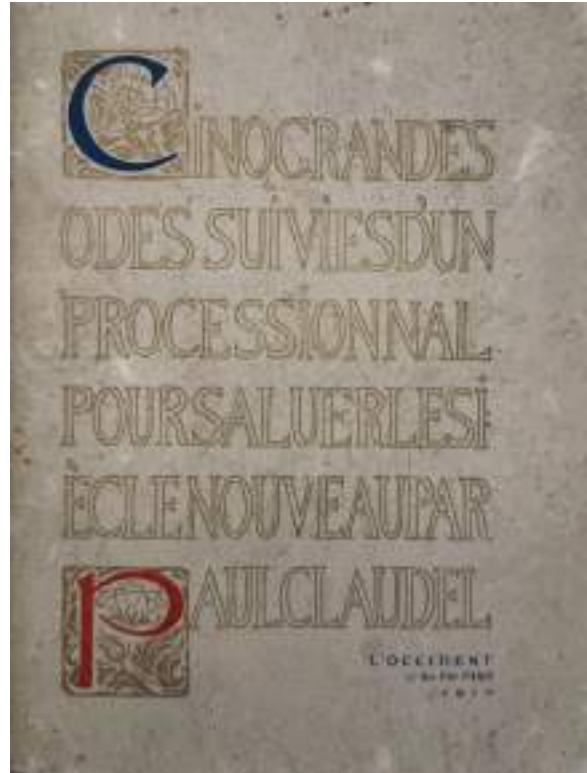 CINQ GRANDES
ODES SUIVIES D'UN
PROCESSIONNAL
POUR SALUER LE SI
ÈCLE NOUVEAU PAR
PAUL CLAUDEL
L'OCCIDENT